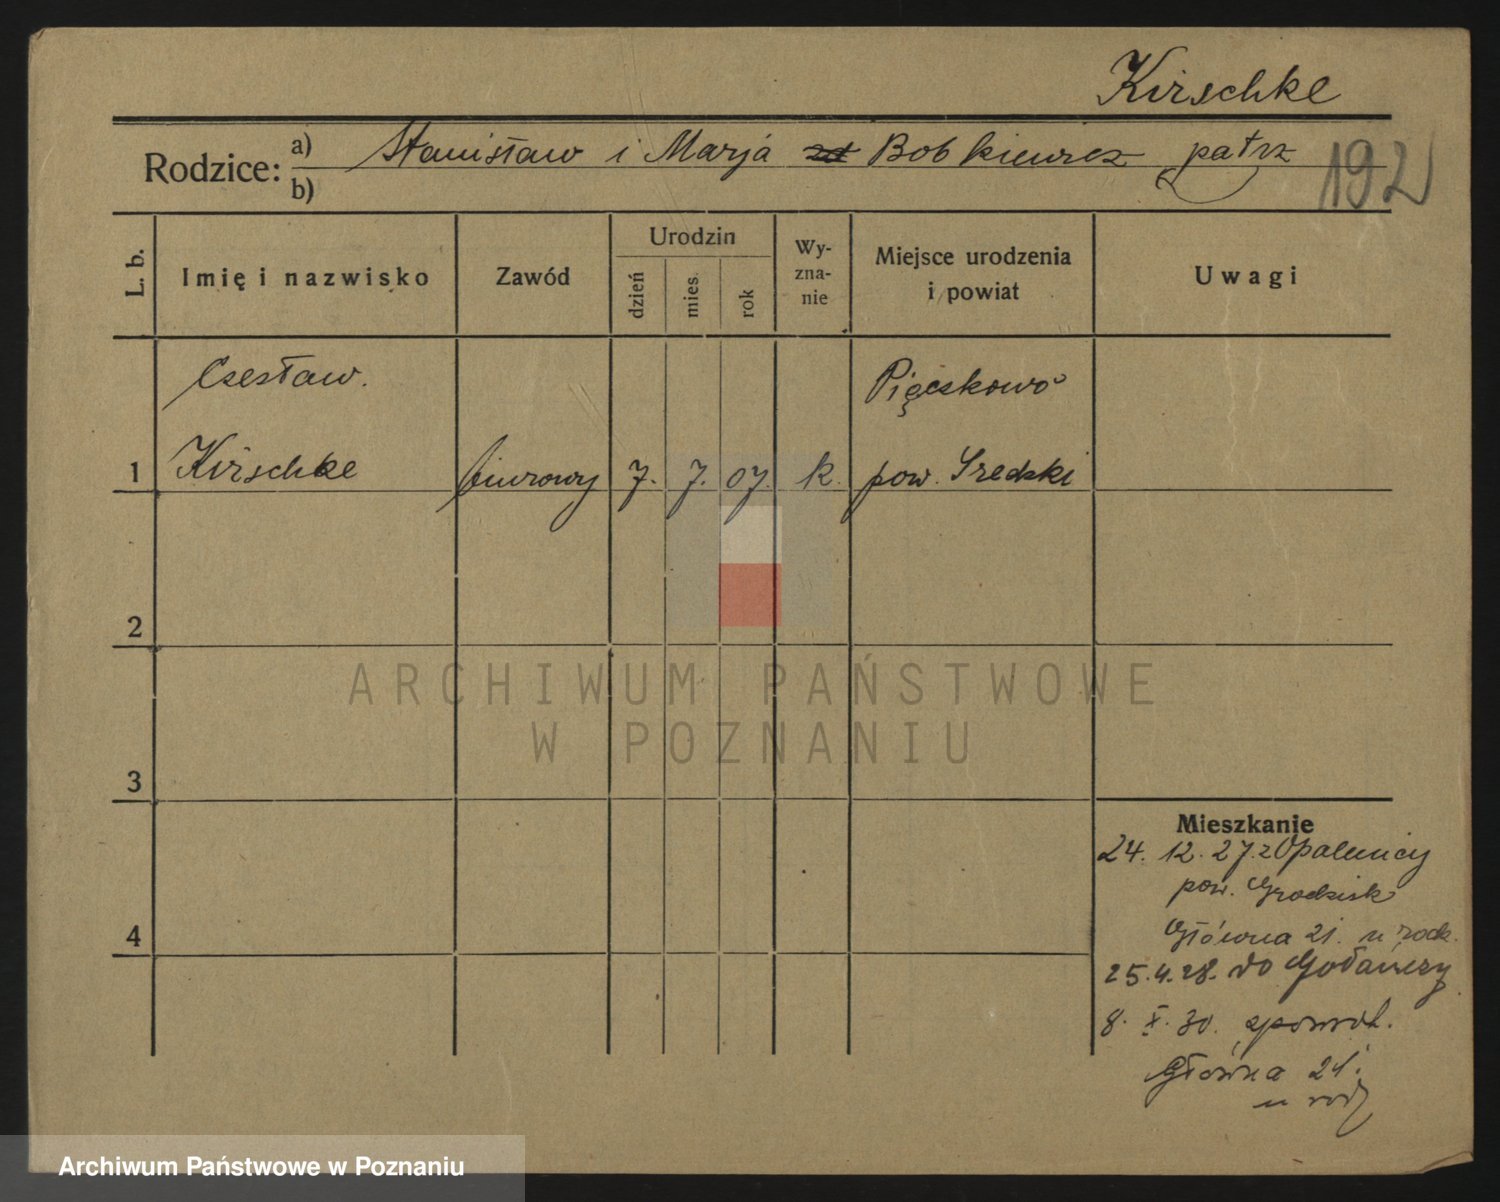 Kirschke
Rodzice: a) Stanisław i Marja Bobkiewicz patrz
b)
192
L. b.
Imię i nazwisko
Zawód
Urodzin
dzień
mies.
rok
Wy-
zna-
nie
Miejsce urodzenia
i powiat
Uwagi
Czesław.
Pięczkowo
1 Kirschke biurowy 7. 7. 07. k. pow. Sredzki
2
ARCHIWUM PAŃSTWOWE
W POZNANIU
3
Mieszkanie
24. 12. 27. z Opalenicy
pow. Grodzisk
Główna 21. u rodz.
4
25.4.28. do Gołańczy
8. X. 30. zpowrot.
Główna 21.
u rodz
Archiwum Państwowe w Poznaniu